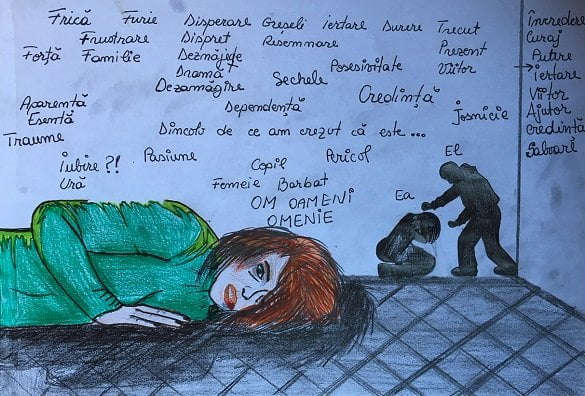 Frică Furie Disperare Greșeli iertare Durere Trecut
Frustrare Dispreț Resemnare Prezent
Forță Familie Dezmățete Posesivitate Viitor
Dramă Sechele
Dezamăgire Credință
Aparentă Dependență
Esentă Josnicie
Traume Dincolo de ce am crezut că este ...
Iubire ?! Pasiune Copil Pericol El
Ură Femeie Barbat Ea
OM OAMENI
OMENIE
Încredere
Curaj
Putere
iertare
Viitor
Ajutor
credință